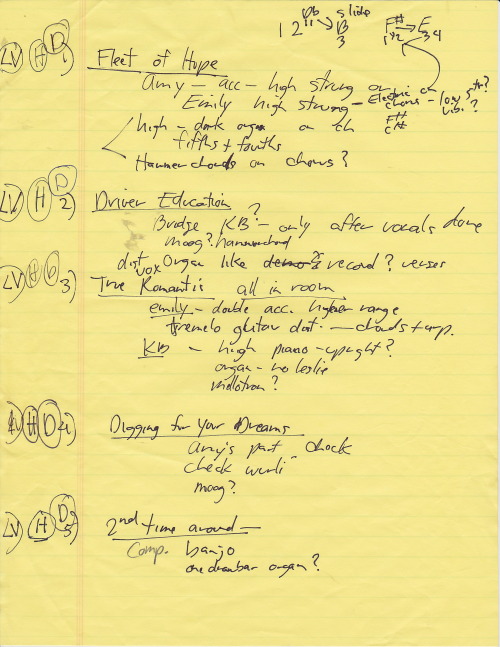 Bb slide F# → E
1 2 " → B 1+2 34
3
LV H D 1) Fleet of Hope
Amy — acc — high strung or
Emily high strung — Electric on
chorus - low str?
F#
C#
high - dark organ on th
fifths + fourths
Hammer chords on chorus?
LV H D 2) Driver Education
Bridge KB? - only after vocals done
moog? hammerchord
dist vox organ like demo? record? verses
LV H D 3) True Romantic all in room
emily - double acc. higher range
tremelo guitar dist. — chords + arp.
KB - high piano - upright?
organ - no leslie
mellotron?
LV H D 4) Digging for Your Dreams
Amy's part - check
check wurli
moog?
LV H D 5) 2nd time around —
Comp. banjo
one drawbar organ?